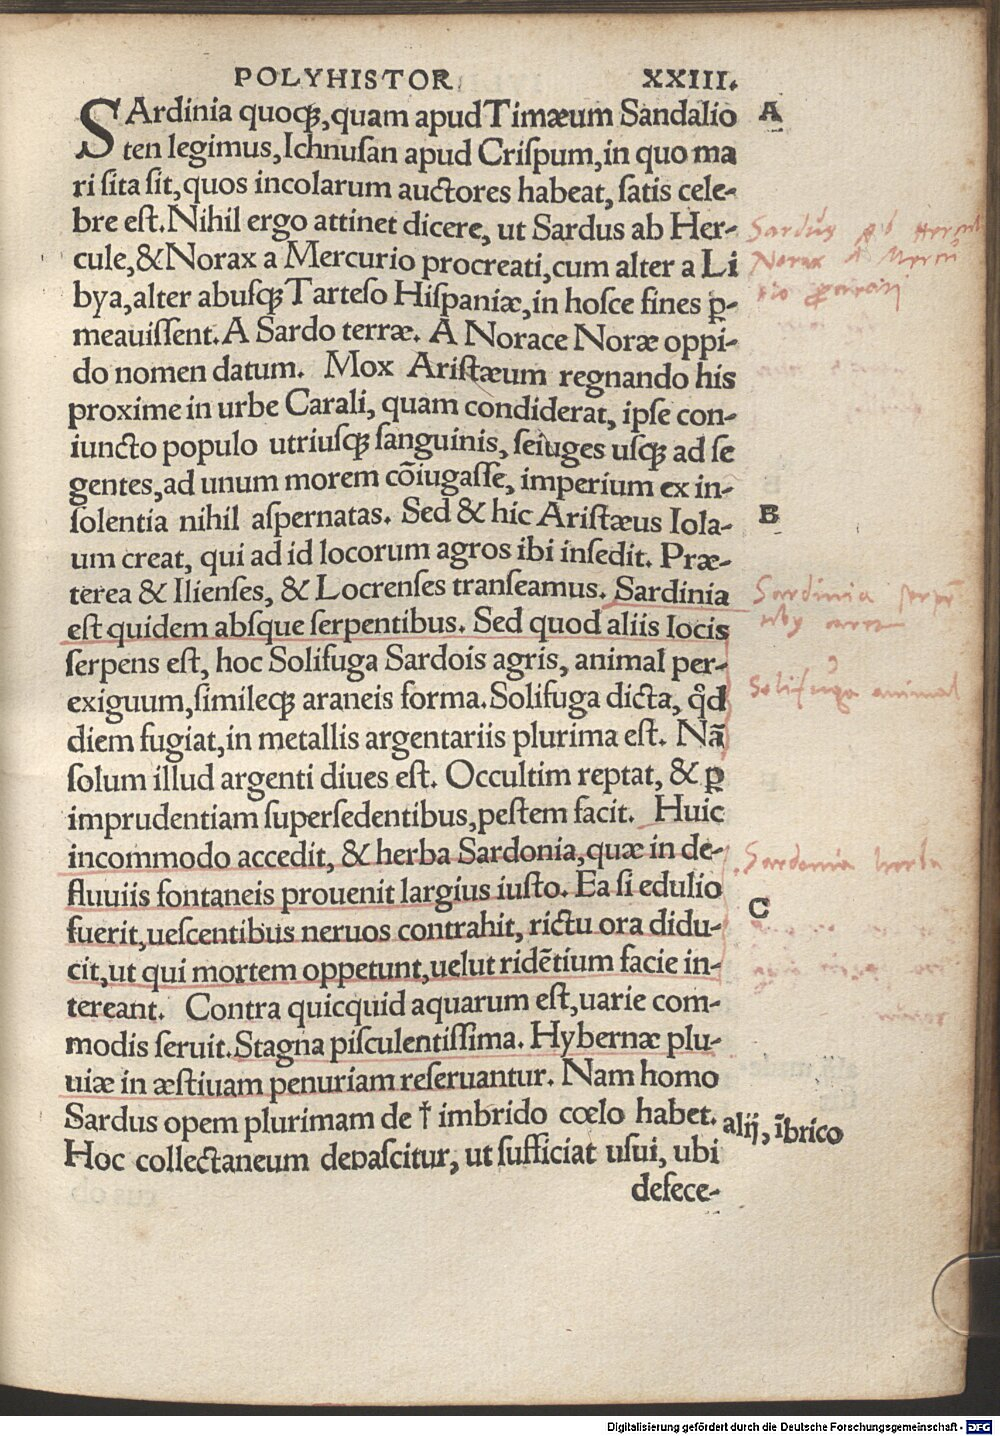 POLYHISTOR XXIII.
SArdinia quoqꝫ, quam apud Timæum Sandalio A
ten legimus, Ichnuſan apud Criſpum, in quo ma
ri ſita ſit, quos incolarum auctores habeat, ſatis cele-
bre eſt. Nihil ergo attinet dicere, ut Sardus ab Her-
cule, & Norax a Mercurio procreati, cum alter a Li
bya, alter abuſqꝫ Tarteſo Hiſpaniæ, in hoſce fines ꝑ-
meauiſſent. A Sardo terræ. A Norace Noræ oppi-
do nomen datum. Mox Ariſtæum regnando his
proxime in urbe Carali, quam condiderat, ipſe con-
iuncto populo utriuſqꝫ ſanguinis, ſeiuges uſqꝫ ad ſe
gentes, ad unum morem cōiugaſſe, imperium ex in-
ſolentia nihil aſpernatas. Sed & hic Ariſtæus Iola- B
um creat, qui ad id locorum agros ibi inſedit. Præ-
terea & Ilienſes, & Locrenſes tranſeamus. Sardinia
eſt quidem abſque ſerpentibus. Sed quod aliis locis
ſerpens eſt, hoc Solifuga Sardois agris, animal per-
exiguum, ſimileqꝫ araneis forma. Solifuga dicta, qd̊
diem fugiat, in metallis argentariis plurima eſt. Nā
ſolum illud argenti diues eſt. Occultim reptat, & ꝑ
imprudentiam ſuperſedentibus, peſtem facit. Huic
incommodo accedit, & herba Sardonia, quæ in de-
fluuiis fontaneis prouenit largius iuſto. Ea ſi edulio
fuerit, ueſcentibus neruos contrahit, rictu ora didu- C
cit, ut qui mortem oppetunt, uelut ridētium facie in-
tereant. Contra quicquid aquarum eſt, uarie com-
modis ſeruit. Stagna piſculentiſſima. Hybernæ plu-
uiæ in æſtiuam penuriam reſeruantur. Nam homo
Sardus opem plurimam de † imbrido cœlo habet. alij, ībrico
Hoc collectaneum depaſcitur, ut ſufficiat uſui, ubi
defece-
Sardus ab
Norax A
Sardinia
Solifuga animal
Sardonia herba
Digitalisierung gefördert durch die Deutsche Forschungsgemeinschaft - DFG